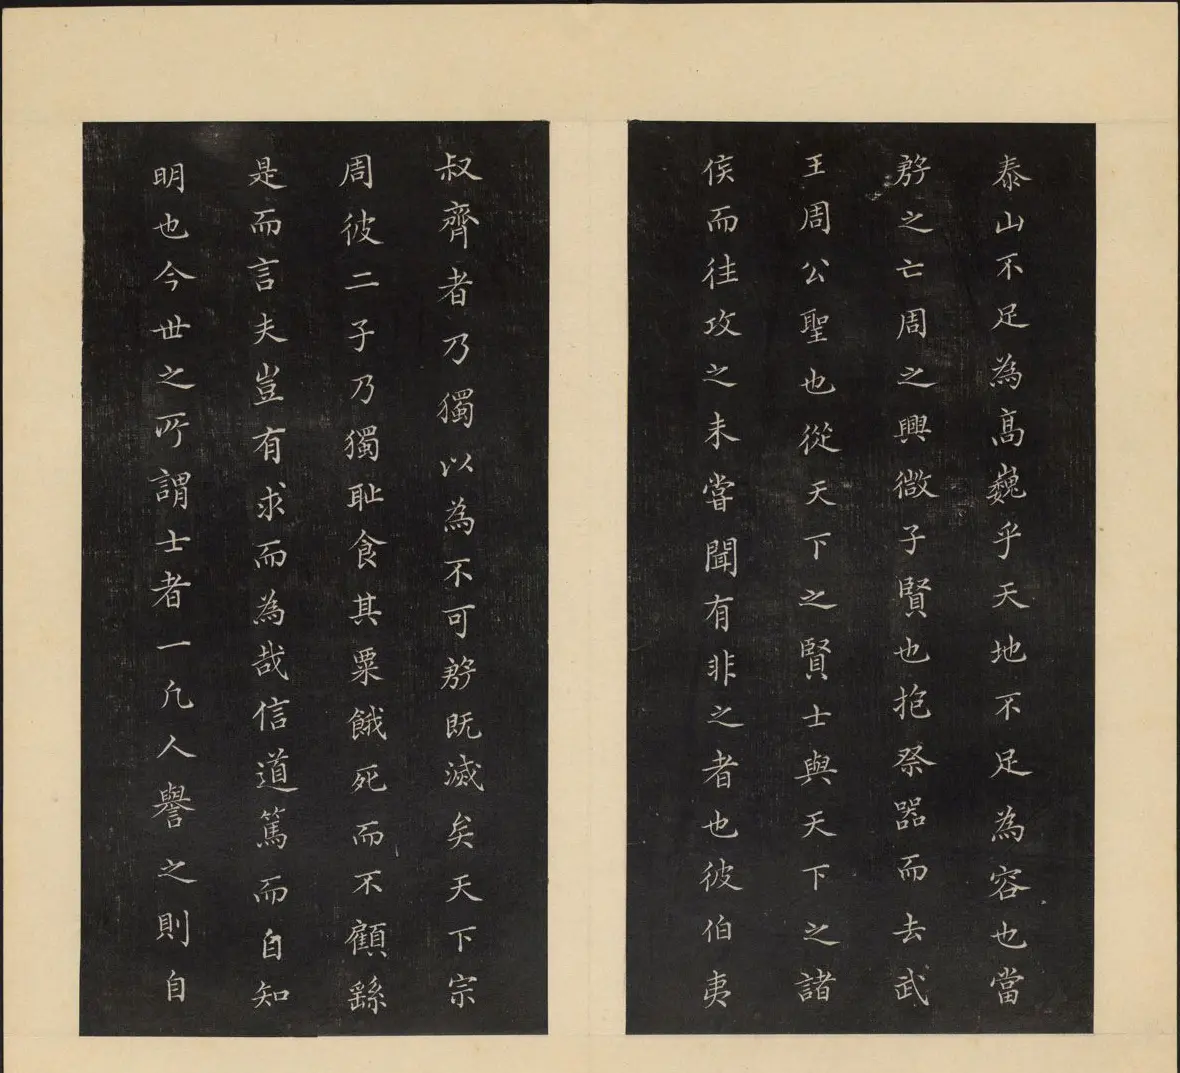 泰山不足為高巍乎天地不足為容也當
殷之亡周之興微子賢也抱祭器而去武
王周公聖也從天下之賢士與天下之諸
侯而往攻之未嘗聞有非之者也彼伯夷
叔齊者乃獨以為不可殷既滅矣天下宗
周彼二子乃獨恥食其粟餓死而不顧繇
是而言夫豈有求而為哉信道篤而自知
明也今世之所謂士者一凡人譽之則自